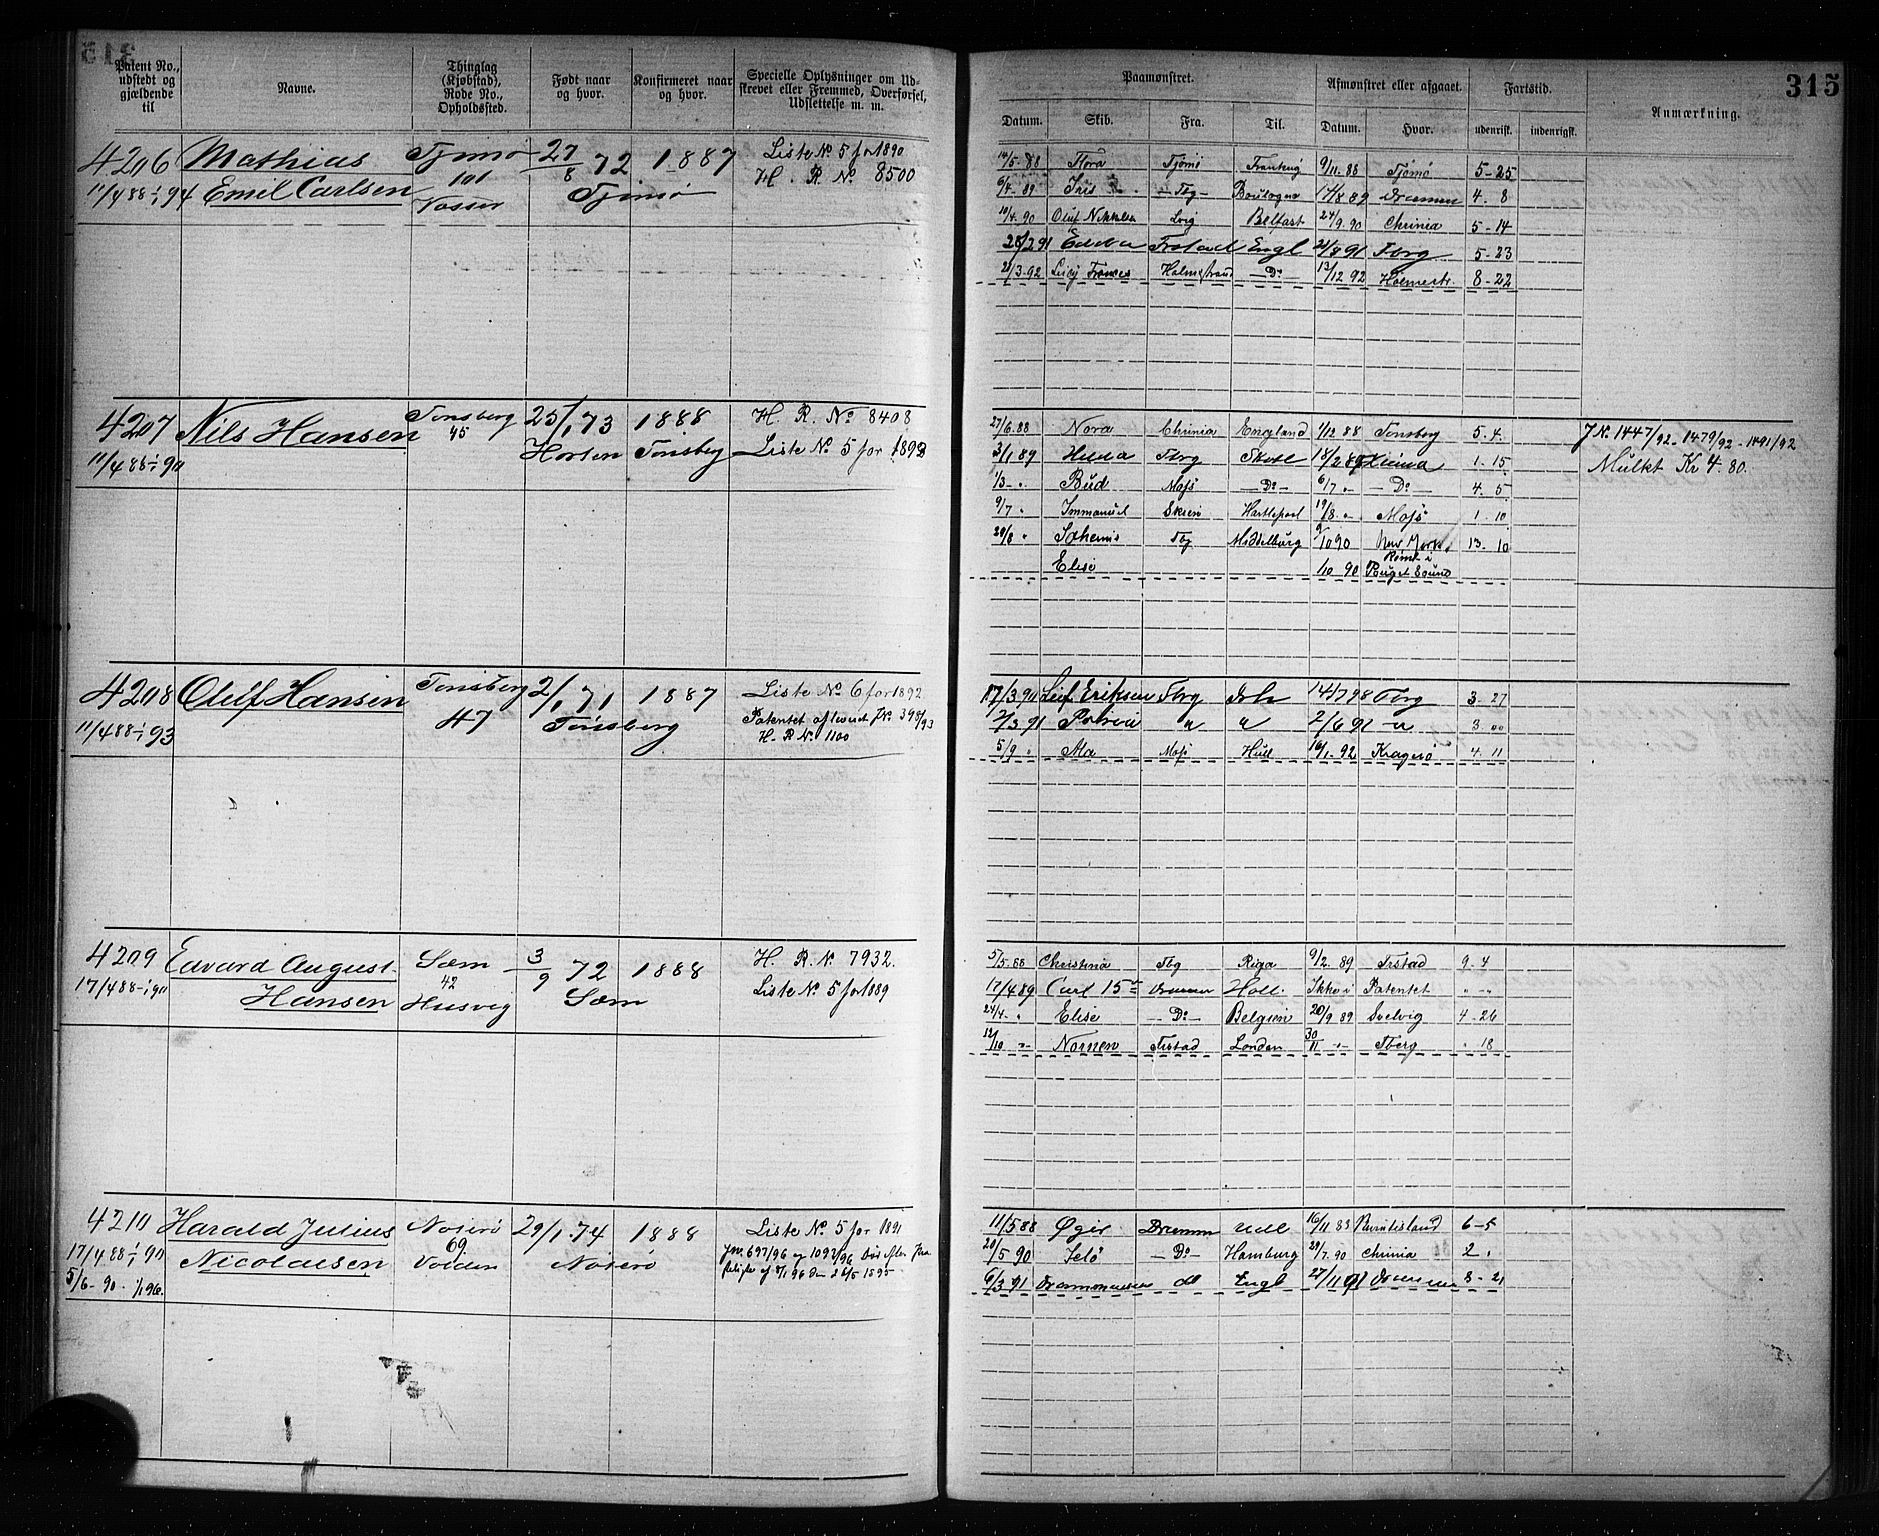 315
Patent No., udstedt og gjældende til
Navne.
Thinglag (Kjøbstad), Rode No., Opholdsfted.
Født naar og hvor.
Konfirmeret naar og hvor.
Specielle Oplysninger om Udskrevet eller Fremmed, Overførsel, Udslettelse m. m.
Paamønstret.
Afmønstret eller afgaaet.
Fartstid.
Anmærkning.
Datum. Skib. Fra. Til. Datum. Hvor. udenrigsk. indenrigsk.
4206 Mathias Tjømø 27/8 72 1887 Liste No 5 for 1890
11/4 88-1/1 94 Emil Carlsen 101 Tjømø H. R. No 8500
Vasser
14/5 88 Flora Tjømø Frankrig 9/11 88 Tjømø 5-25
6/4 89 Iris Tbg Boulogne 14/8 89 Drammen 4 8
10/4 90 Oluf Lvig Belfast 24/9 90 Chrinia 5-14
25/2 91 Edda Frstad Engl 21/8 91 Tbrg 5-23
21/3-92 Lucy Frances Holmestrand Do 13/12 92 Holmestr. 8-22
4207 Nils Hansen Tønsberg 25/1 73 1888 H. R. No 8408
11/4 88-1/1 90 45 Horten Tønsberg Liste No 5 for 1893
27/6 88 Nora Chrinia England 1/12 88 Tønsberg 5. 4. J No 1447/92 - 1479/92 - 1491/92
3/1 89 Tbrg Skotl 18/2 89 Krinia 1. 15 Mulkt Kr 4. 80.
1/3 - " Bud Moss Do 6/7 " Do 4. 5
9/7 " Immanuel Skien Hartlepool 19/8 " Moss 1. 10
20/8 " Tbg Middelburg 9/10 90 New York 13. 10
Elise 1/10 90 Rømt i Puget Sound
4208 Oluf Hansen Tønsberg 2/1 71 1887 Liste No 6 for 1892
11/4 88-1/1 93 47 Tønsberg Patentet afleveret J No 398/93
H. R No 1100
17/3 90 Leif Eriksen Tbrg 14/7 98 Tbrg 3. 27
2/3 91 Patria " " 2/6 91 " 3 "
5/9 " Ata Moss Hull 16/1-92 Kragerø 4. 11
4209 Edvard August Sæm 3/9 72 1888 H. R. No 7932.
17/4 88-1/1 90 Hansen 42 Sæm Liste No 5 for 1889
Husvig
5/5 88 Christina Tbg Riga 9/2 89 Frstad 9. 4
12/4 89 Carl 15de Drammen Holl. Ikke i Patentet " - "
24/4 " Elise Do Belgien 20/9 89 Svelvig 4-26
12/10 " Nornen Frstad London 30/11 " Tberg " 18
4210 Harald Julius Nøterø 29/1 74 1888 Liste No 5 for 1891
17/4 88-1/1 90 Nicolaisen 69 Nøterø Jno 697/96 og 1092/96 Død efter
5/6-90 - 1/1 96. Volden
11/5 88 Øgir Dramm Udl 16/11 88 Burntisland 6-5
20/5 90 Jelø Do Hamburg 29/7. 90 Chrinia 2 "
6/3 91 Drammenseren do Engl 27/11 91 Drammen 8-21